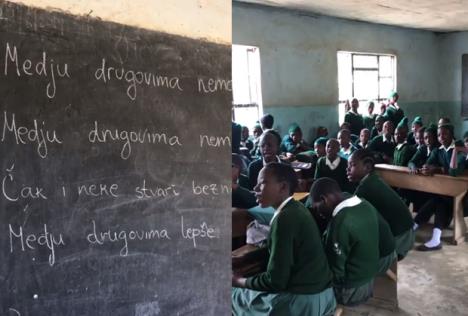 Medju drugovima nema
Medju drugovima nem
Čak i neke stvari bezn
Medju drugovima lepše